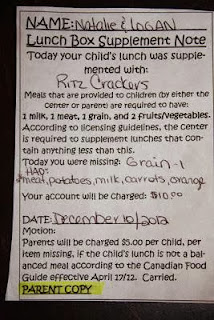 NAME: Natalie & LOGAN
Lunch Box Supplement Note
Today your child's lunch was supple-
mented with:
Ritz Crackers
Meals that are provided to children (by either the
center or parent) are required to have:
1 milk, 1 meat, 1 grain, and 2 fruits/vegetables.
According to licensing guidelines, the Center
is required to supplement lunches that con-
tain anything less than this.
Today you were missing: Grain-1
HAD:
meat, potatoes, milk, carrots, orange
Your account will be charged: $10.00
DATE: December 10/2012
Motion:
Parents will be charged $5.00 per child, per
item missing, if the child's lunch is not a bal-
anced meal according to the Canadian Food
Guide effective April 17/12. Carried.
PARENT COPY